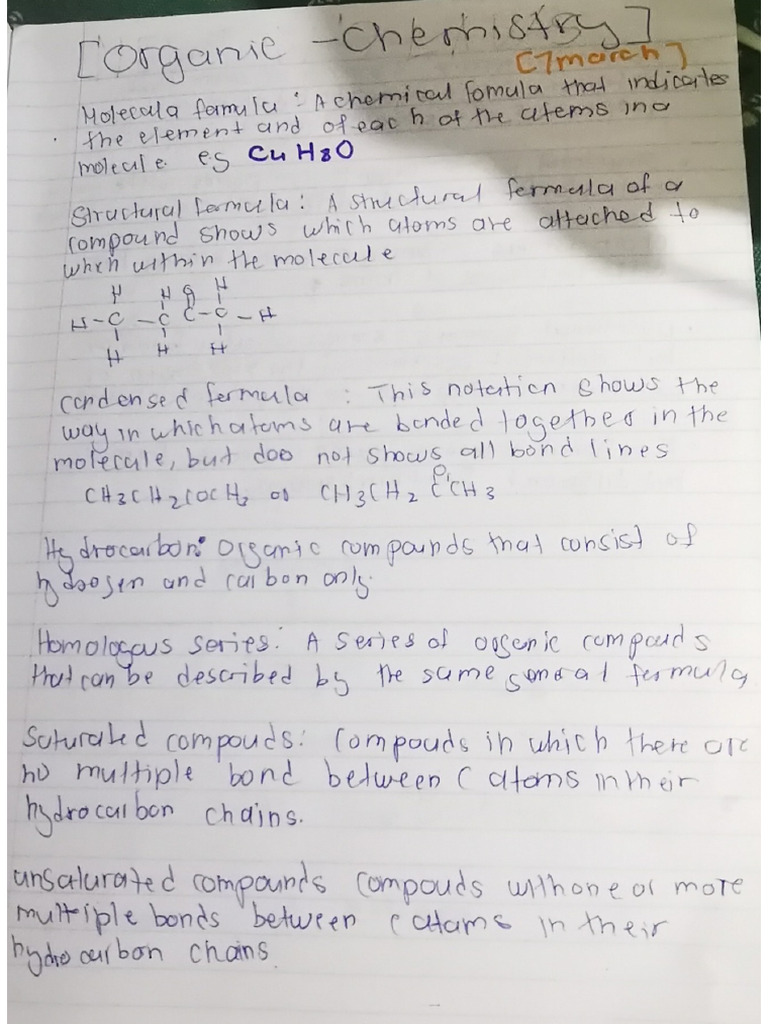 [Organic - Chemistry]
[7 march]
Molecula formula : A chemical fomula that indicates
the element and of each n of the atems in a
molecule eg C4H8O
Structural formula : A structural fermula of a
compound shows which atoms are attached to
which within the molecule
H H O H
H-C-C C-C-H
H H H
condensed fermula : This notation shows the
way in which atoms are bonded together in the
molecule, but doo not shows all bond lines
CH3CH2COCH3 or CH3CH2CCH3
O
Hydrocarbon: Organic compounds that consist of
hydrogen and carbon only.
Homologous series: A series of organic compouds
that can be described by the same general fermula
Saturated compouds: Compouds in which there are
no multiple bond between C atoms in their
hydrocarbon chains.
unsaturated compounds compouds with one or more
multiple bonds between C atams in their
hydrocarbon chains